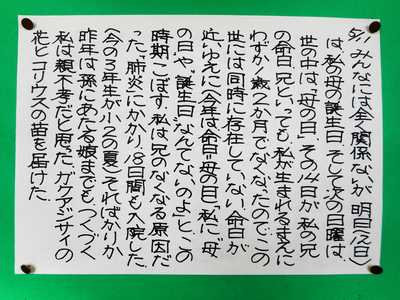 5/11 みんなには全く関係ないが、明日(12日)
は、私の母の誕生日。そして次の日曜は、
世の中は、「母の日」、その14日が、私の兄
の命日。兄といっても、私が生まれるまえに
わずか1歳2か月でなくなったので、この
世には同時に存在していない。命日が
近いゆえに(今年は命日=母の日)、「私に『母
の日』や、『誕生日』なんてないのよ」と、この
時期こぼす。私は、兄のなくなる原因だ
った、「肺炎」にかかり、18日間も入院した。
(今の3年生が小2の夏)そればかりか
昨年は孫にあたる娘までも。つくづく
私は親不孝だと思った。ガクアジサイの
花とコリウスの苗を届けた。